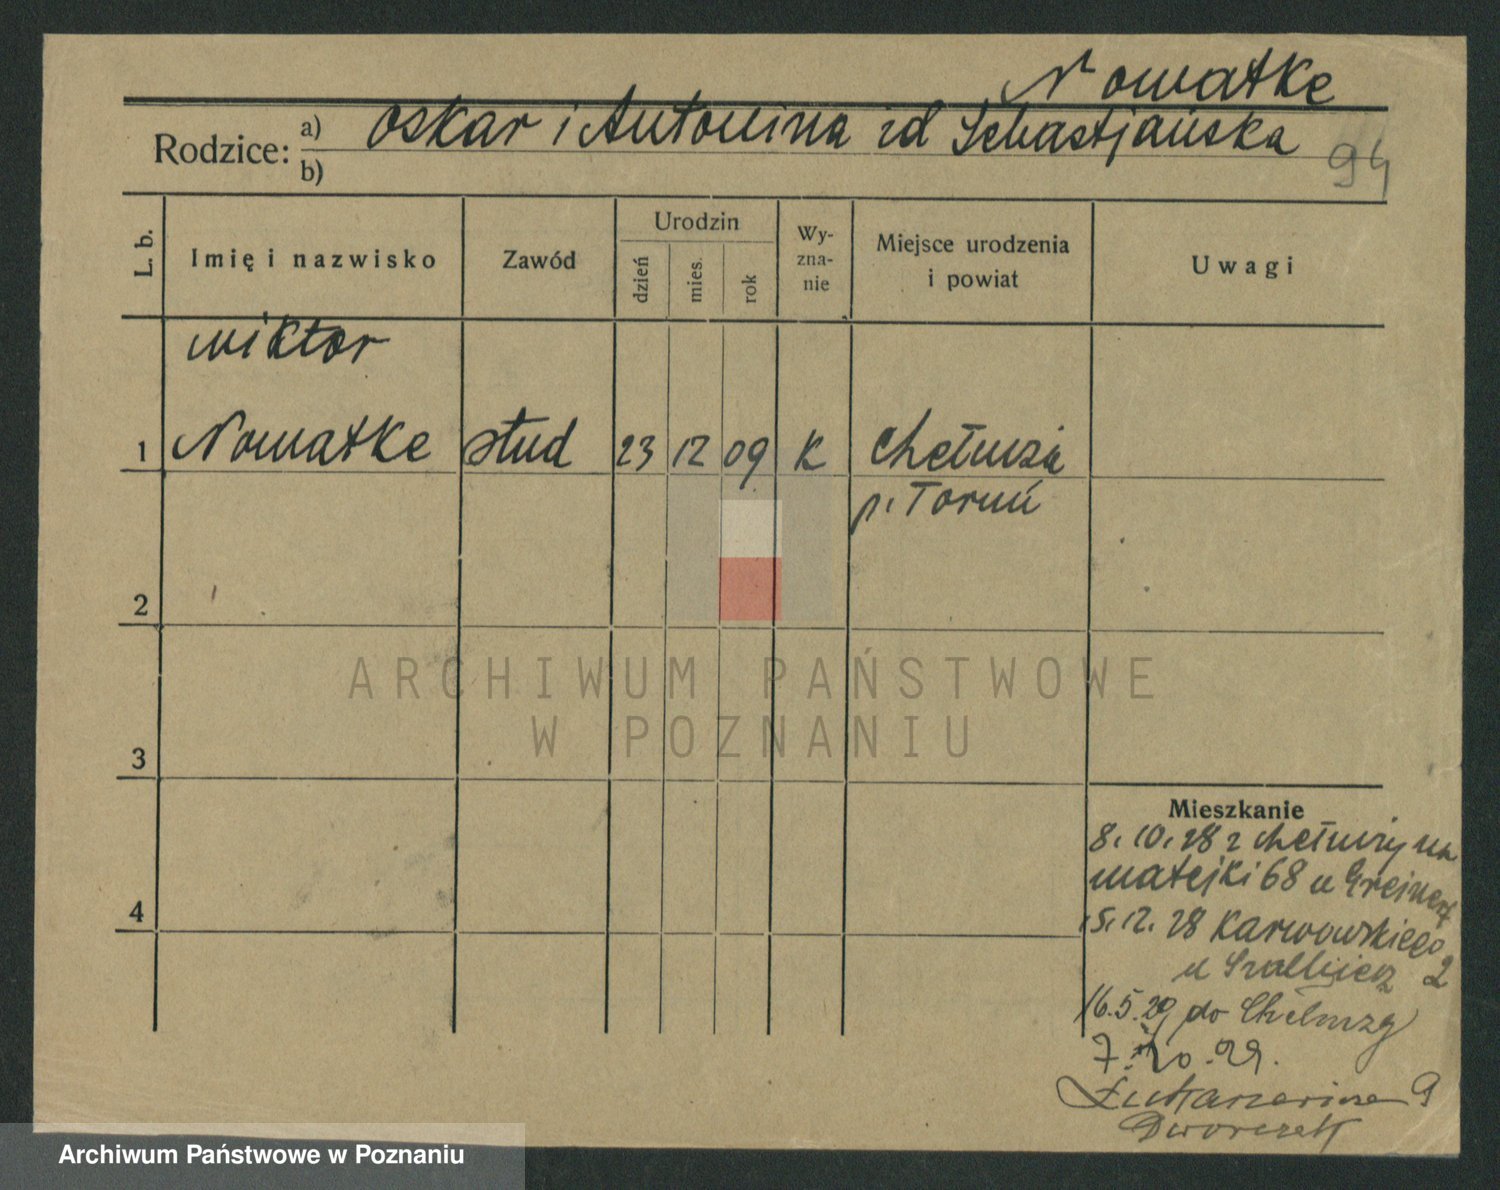 Nowatke
Rodzice: a) Oskar i Antonina zd Sebastjańska
b)
94
L. b.
Imię i nazwisko
Zawód
Urodzin
dzień
mies.
rok
Wy-
zna-
nie
Miejsce urodzenia
i powiat
Uwagi
Wiktor
1 Nowatke stud 23 12 09 K Chełmża
p. Toruń
2
3
4
ARCHIWUM PAŃSTWOWE
W POZNANIU
Mieszkanie
8.10.28 z Chełmży na
Matejki 68 u Greinert
15.12.28 Karwowskiego 2
u
16.5.29 do Chełmży
7. 10. 29.
Łukaszewicza 9
Dworczak
Archiwum Państwowe w Poznaniu